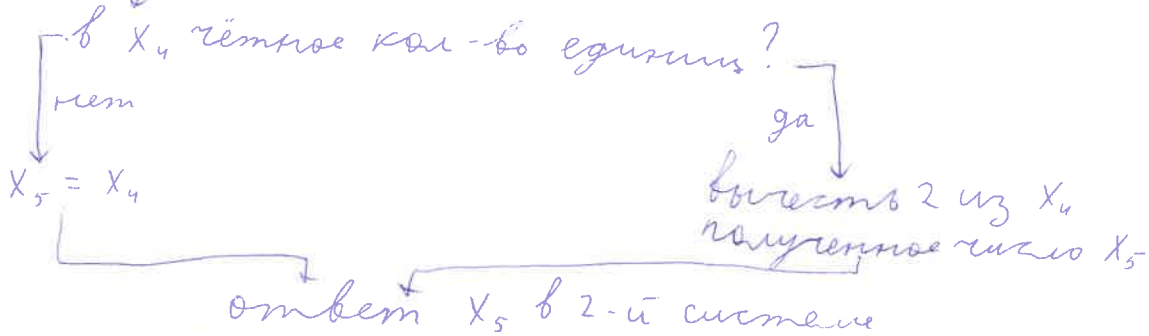 в X₄ чётное кол-во единиц?
нет
да
X₅ = X₄
вычесть 2 из X₄
полученное число X₅
ответ X₅ в 2-й системе